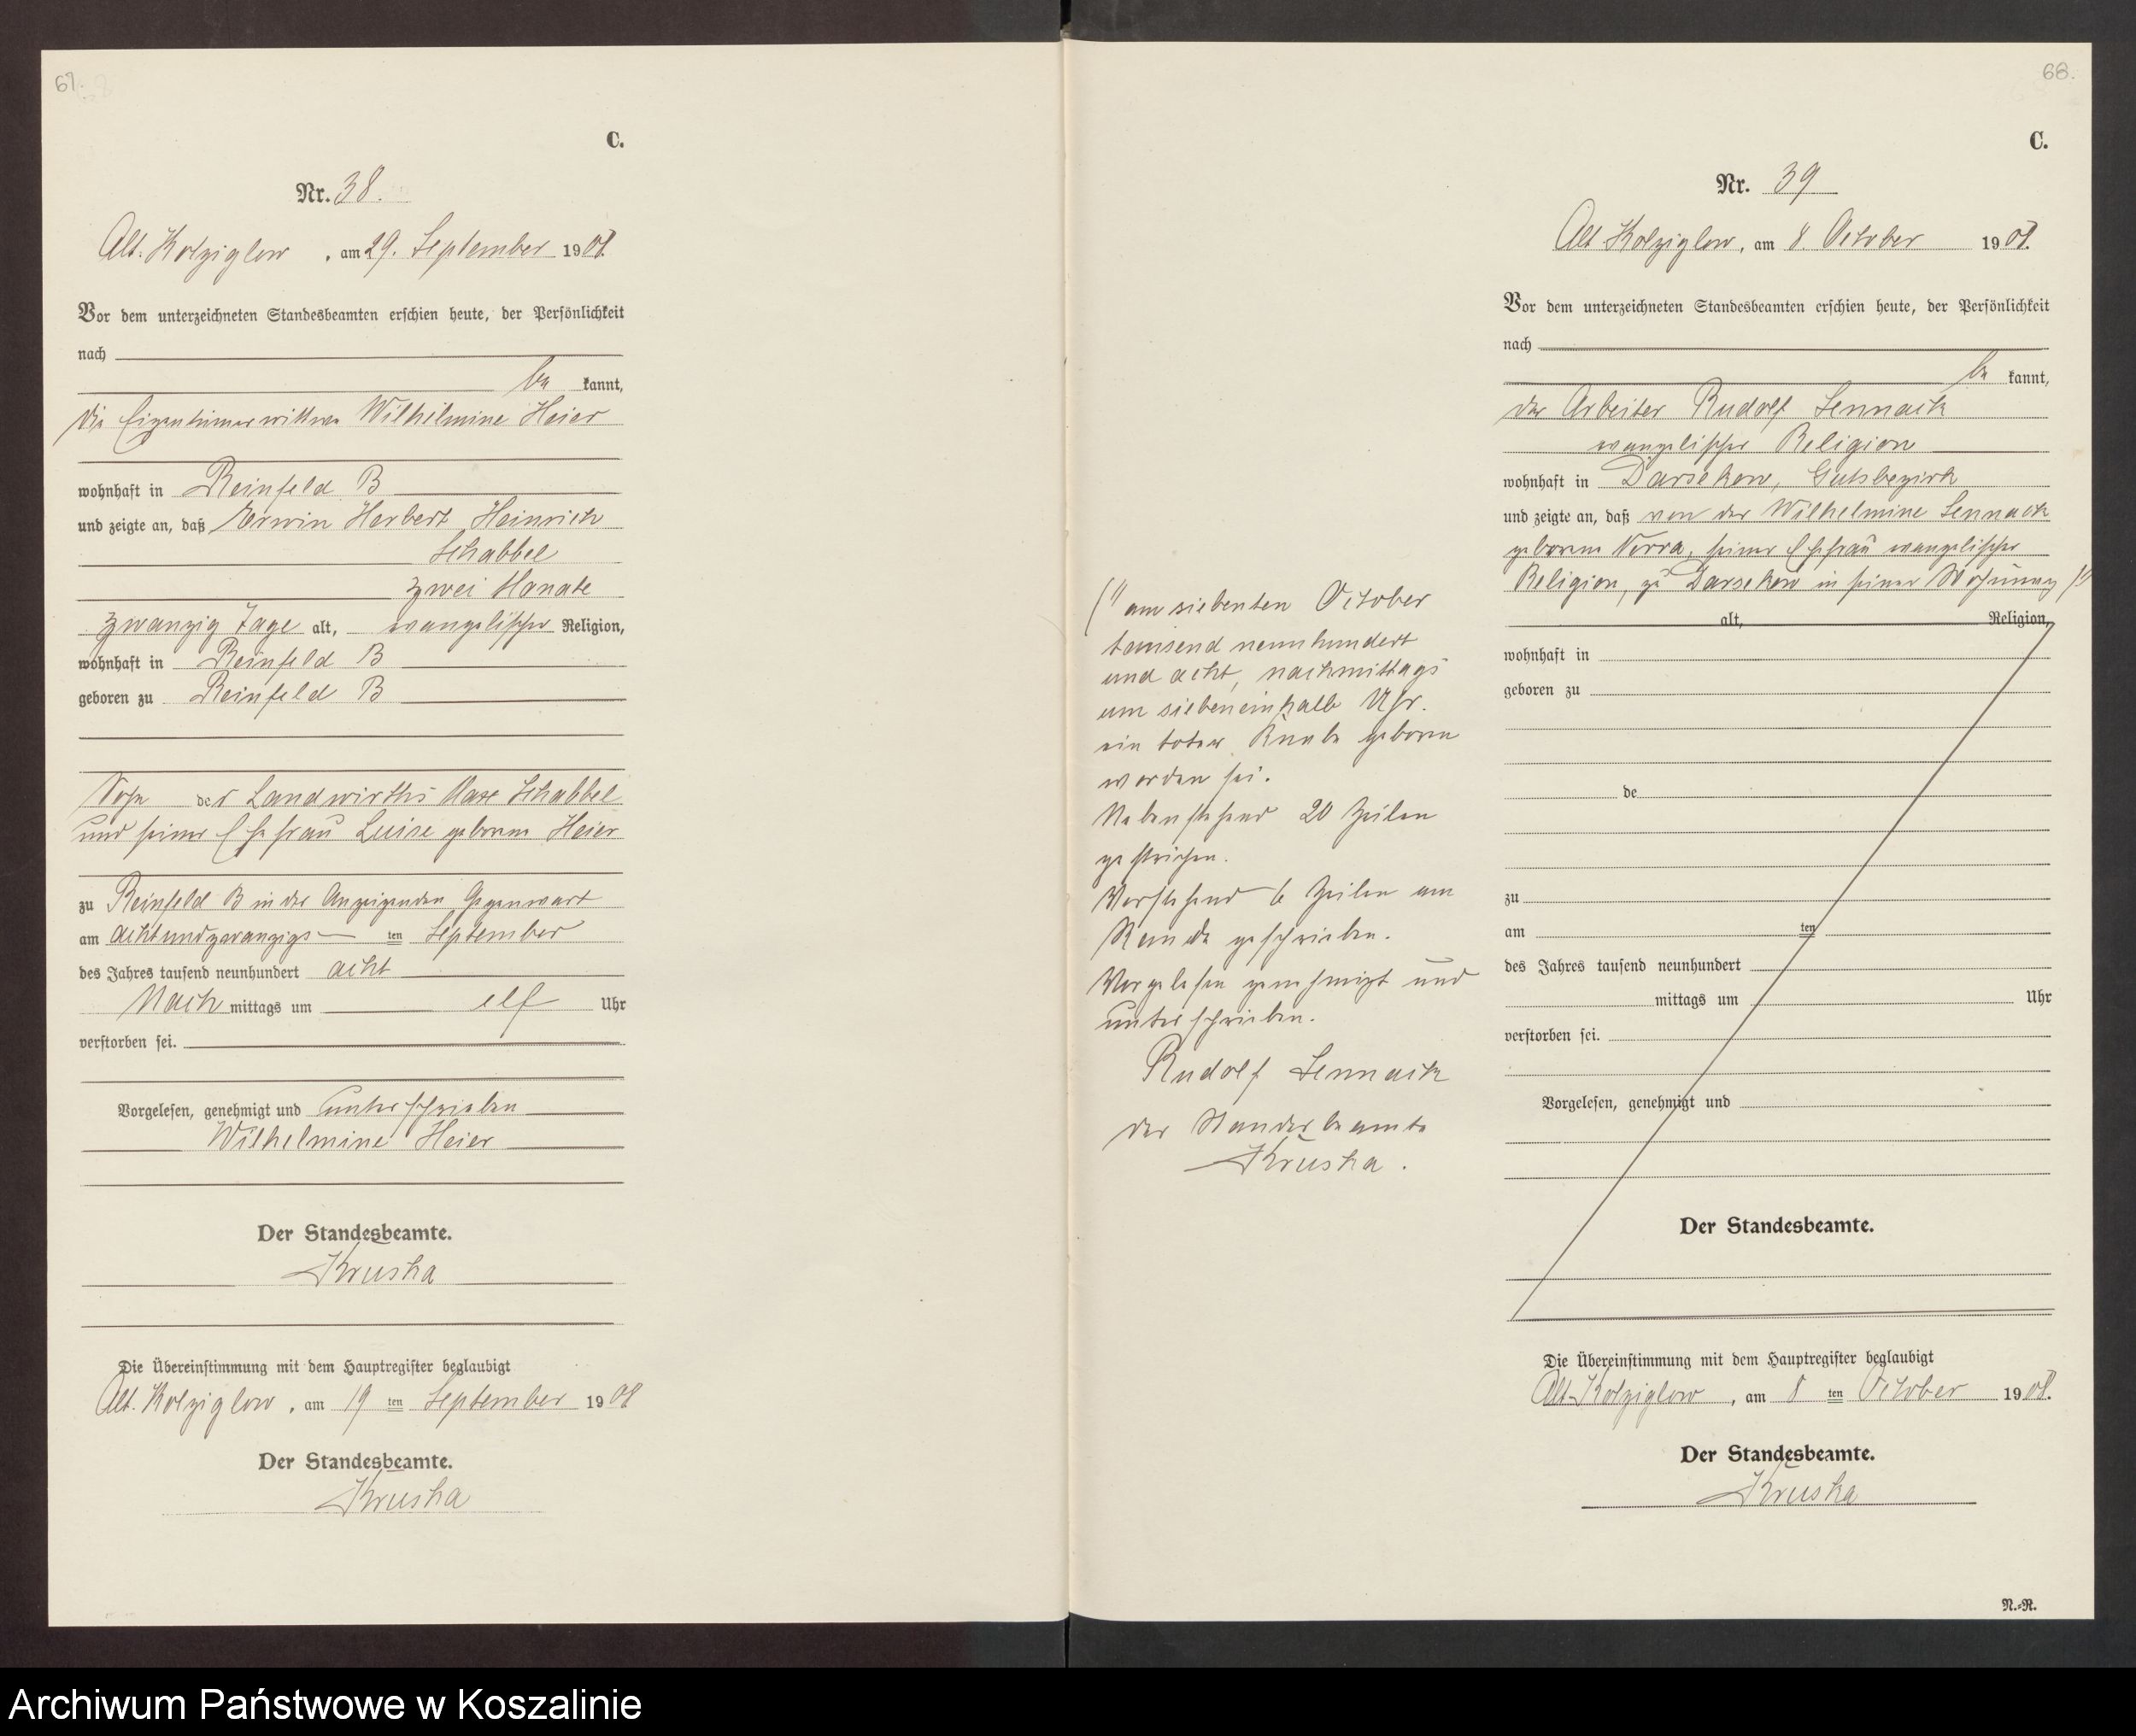 67.
C.
Nr. 38.
Alt. Kolziglow, am 29. September 1908.
Vor dem unterzeichneten Standesbeamten erschien heute, der Persönlichkeit
nach
be kannt,
die Eigentümerwittwe Wilhelmine Heier
wohnhaft in Reinfeld B
und zeigte an, daß Erwin Herbert Heinrich
Schabbel
zwei Monate
zwanzig Tage alt, evangelischer Religion,
wohnhaft in Reinfeld B
geboren zu Reinfeld B
Sohn des Landwirths Max Schabbel
und seiner Ehefrau Luise geborene Heier
zu Reinfeld B in der Anzeigenden Gegenwart
am achtundzwanzigs ten September
des Jahres tausend neunhundert acht
Nach mittags um elf Uhr
verstorben sei.
Vorgelesen, genehmigt und unterschrieben
Wilhelmine Heier
Der Standesbeamte.
Kruska
Die Übereinstimmung mit dem Hauptregister beglaubigt
Alt. Kolziglow, am 19 ten September 1908
Der Standesbeamte.
Kruska
68.
C.
Nr. 39
Alt Kolziglow, am 8 October 1908.
Vor dem unterzeichneten Standesbeamten erschien heute, der Persönlichkeit
nach
be kannt,
der Arbeiter Rudolf Lennack
evangelischer Religion
wohnhaft in Darsekow, Gutsbezirk
und zeigte an, daß von der Wilhelmine Lennack
geborene Norra, seiner Ehefrau evangelischer
Religion, zu Darsekow in seiner Wohnung
alt, Religion,
wohnhaft in
geboren zu
de
zu
am ten
des Jahres tausend neunhundert
mittags um Uhr
verstorben sei.
Vorgelesen, genehmigt und
Der Standesbeamte.
Die Übereinstimmung mit dem Hauptregister beglaubigt
Alt-Kolziglow, am 8 ten October 1908.
Der Standesbeamte.
Kruska
N.-R.
am siebenten October
tausend neunhundert
und acht, nachmittags
um siebeneinhalb Uhr.
ein toter Knabe geboren
worden sei.
Nebenstehend 20 Zeilen
gestrichen.
Vorstehend 6 Zeilen am
Rande geschrieben.
Vorgelesen genehmigt und
unterschrieben.
Rudolf Lennack
der Standesbeamte
Kruska.
Archiwum Państwowe w Koszalinie